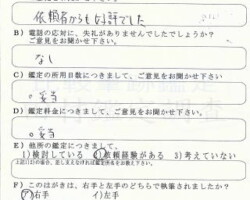 依頼者からも好評でした
B) 電話の応対に、失礼がありませんでしたでしょうか?
ご意見をお聞かせ下さい。
なし
C) 鑑定の所用日数につきまして、ご意見をお聞かせ下さい
妥当
D) 鑑定料金につきまして、ご意見をお聞かせ下さい。
妥当
E) 他所の鑑定につきまして、
1)検討している 2)依頼経験がある 3)考えていない
F) このはがきは、右手と左手のどちらで執筆されましたか?
ア)右手 イ)左手